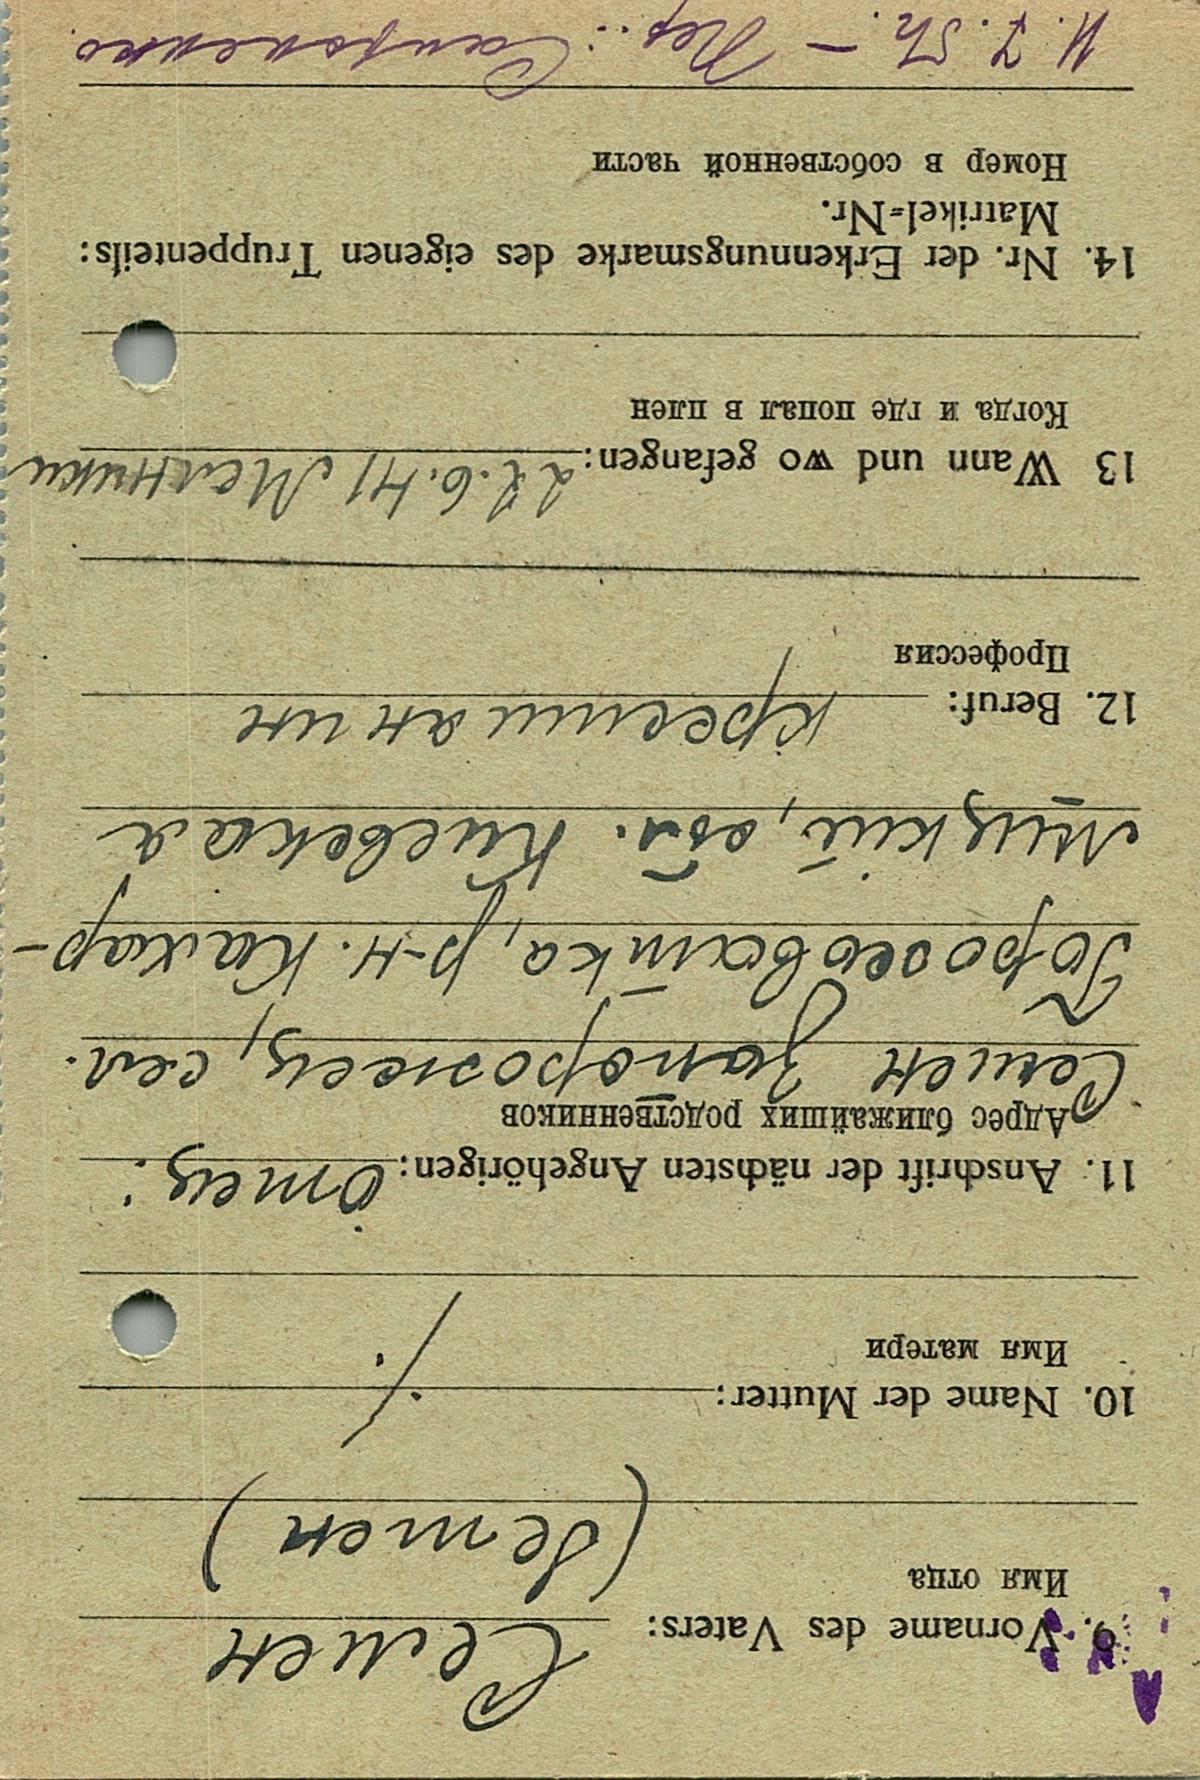 9. Vorname des Vaters: Семен
Имя отца
(Semen)
10. Name der Mutter: ./.
Имя матери
11. Anschrift der nächsten Angehörigen: отец:
Адрес ближайших родственников
Семен Запорожец, сел.
р-н. Кагар-
лицкий, обл. Киевская
12. Beruf: крестианин
Профессия
13 Wann und wo gefangen: 28.6.41 Мельники
Когда и где попал в плен
14. Nr. der Erkennungsmarke des eigenen Truppenteils:
Matrikel=Nr.
Номер в собственной части
- Пер.: Сапроненко.